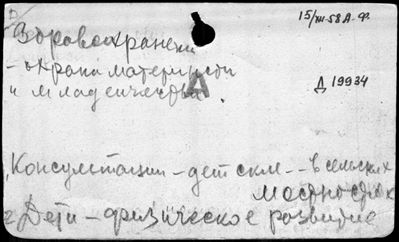 15/XII-58 А.Ф.
Здравоохранение
- охрана материнства
и младенчества
А
Д 19934
1, Консультации - детские - в сельских
местностях
2 Дети - физическое развитие